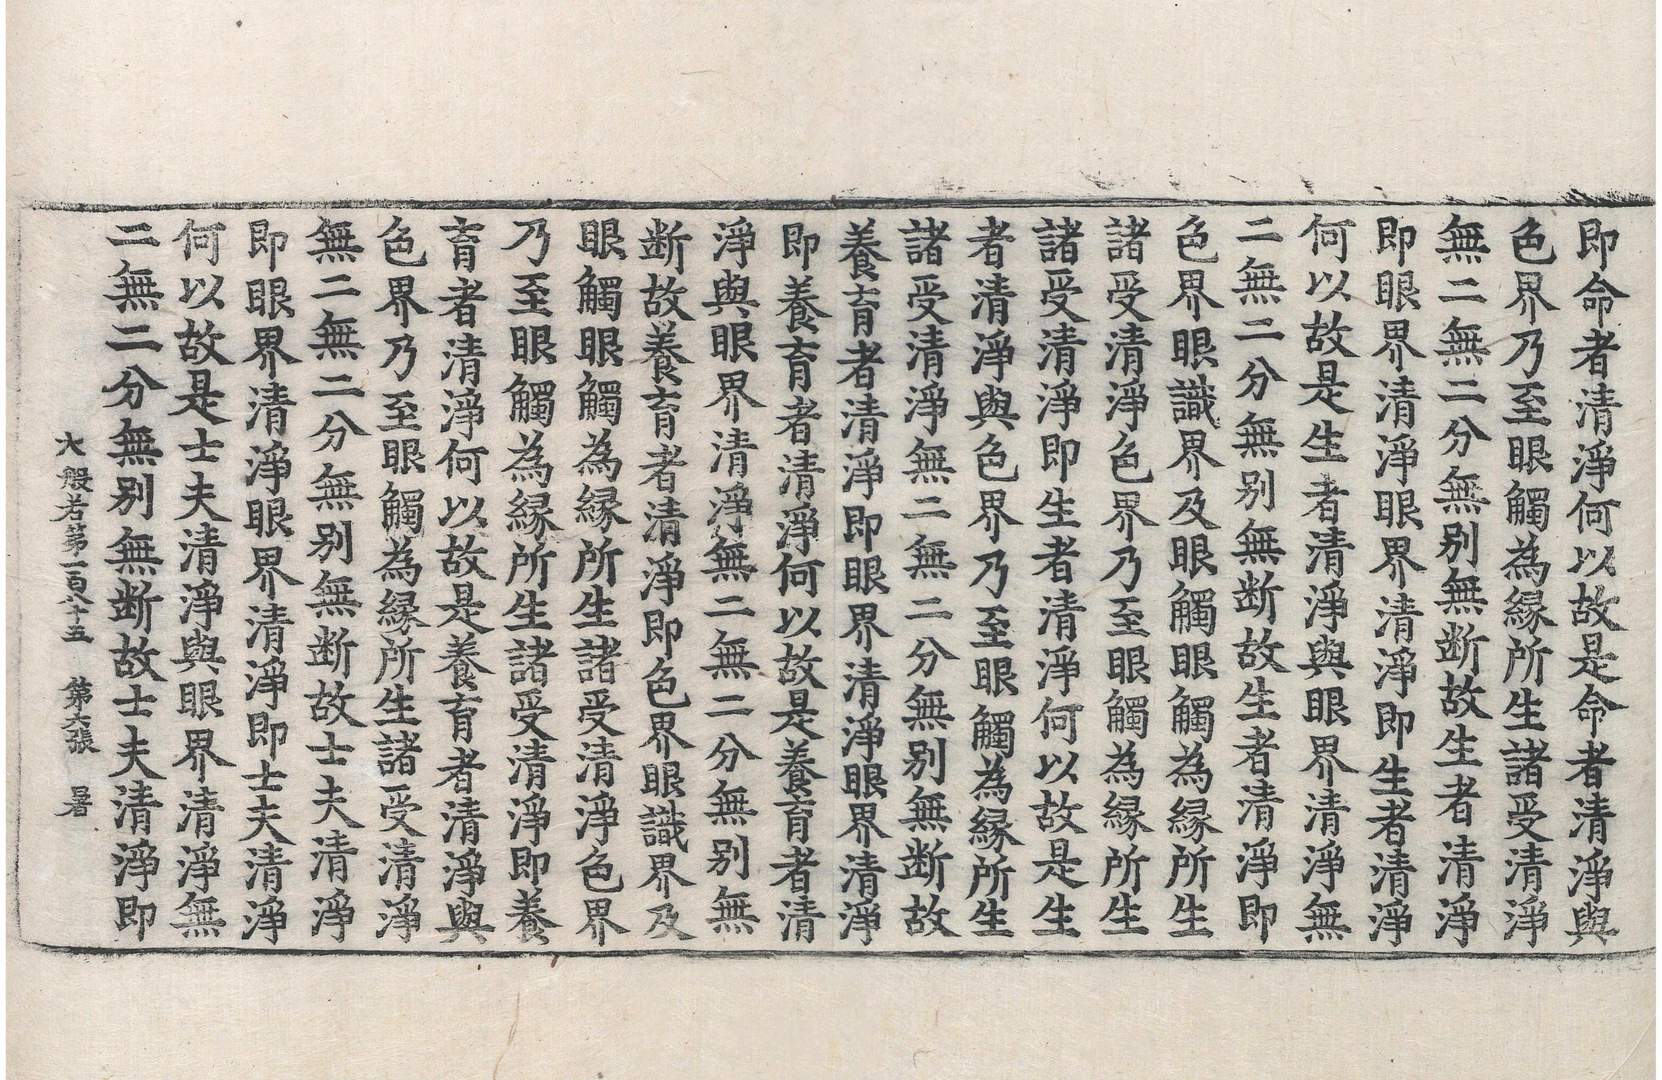 即命者清淨何以故是命者清淨與
色界乃至眼觸為緣所生諸受清淨
無二無二分無別無斷故生者清淨
即眼界清淨眼界清淨即生者清淨
何以故是生者清淨與眼界清淨無
二無二分無別無斷故生者清淨即
色界眼識界及眼觸眼觸為緣所生
諸受清淨色界乃至眼觸為緣所生
諸受清淨即生者清淨何以故是生
者清淨與色界乃至眼觸為緣所生
諸受清淨無二無二分無別無斷故
養育者清淨即眼界清淨眼界清淨
即養育者清淨何以故是養育者清
淨與眼界清淨無二無二分無別無
断故養育者清淨即色界眼識界及
眼觸眼觸為緣所生諸受清淨色界
乃至眼觸為緣所生諸受清淨即養
育者清淨何以故是養育者清淨與
色界乃至眼觸為緣所生諸受清淨
無二無二分無別無断故士夫清淨
即眼界清淨眼界清淨即士夫清淨
何以故是士夫清淨與眼界清淨無
二無二分無別無断故士夫清淨即
大般若第一百八十五 第六張 暑